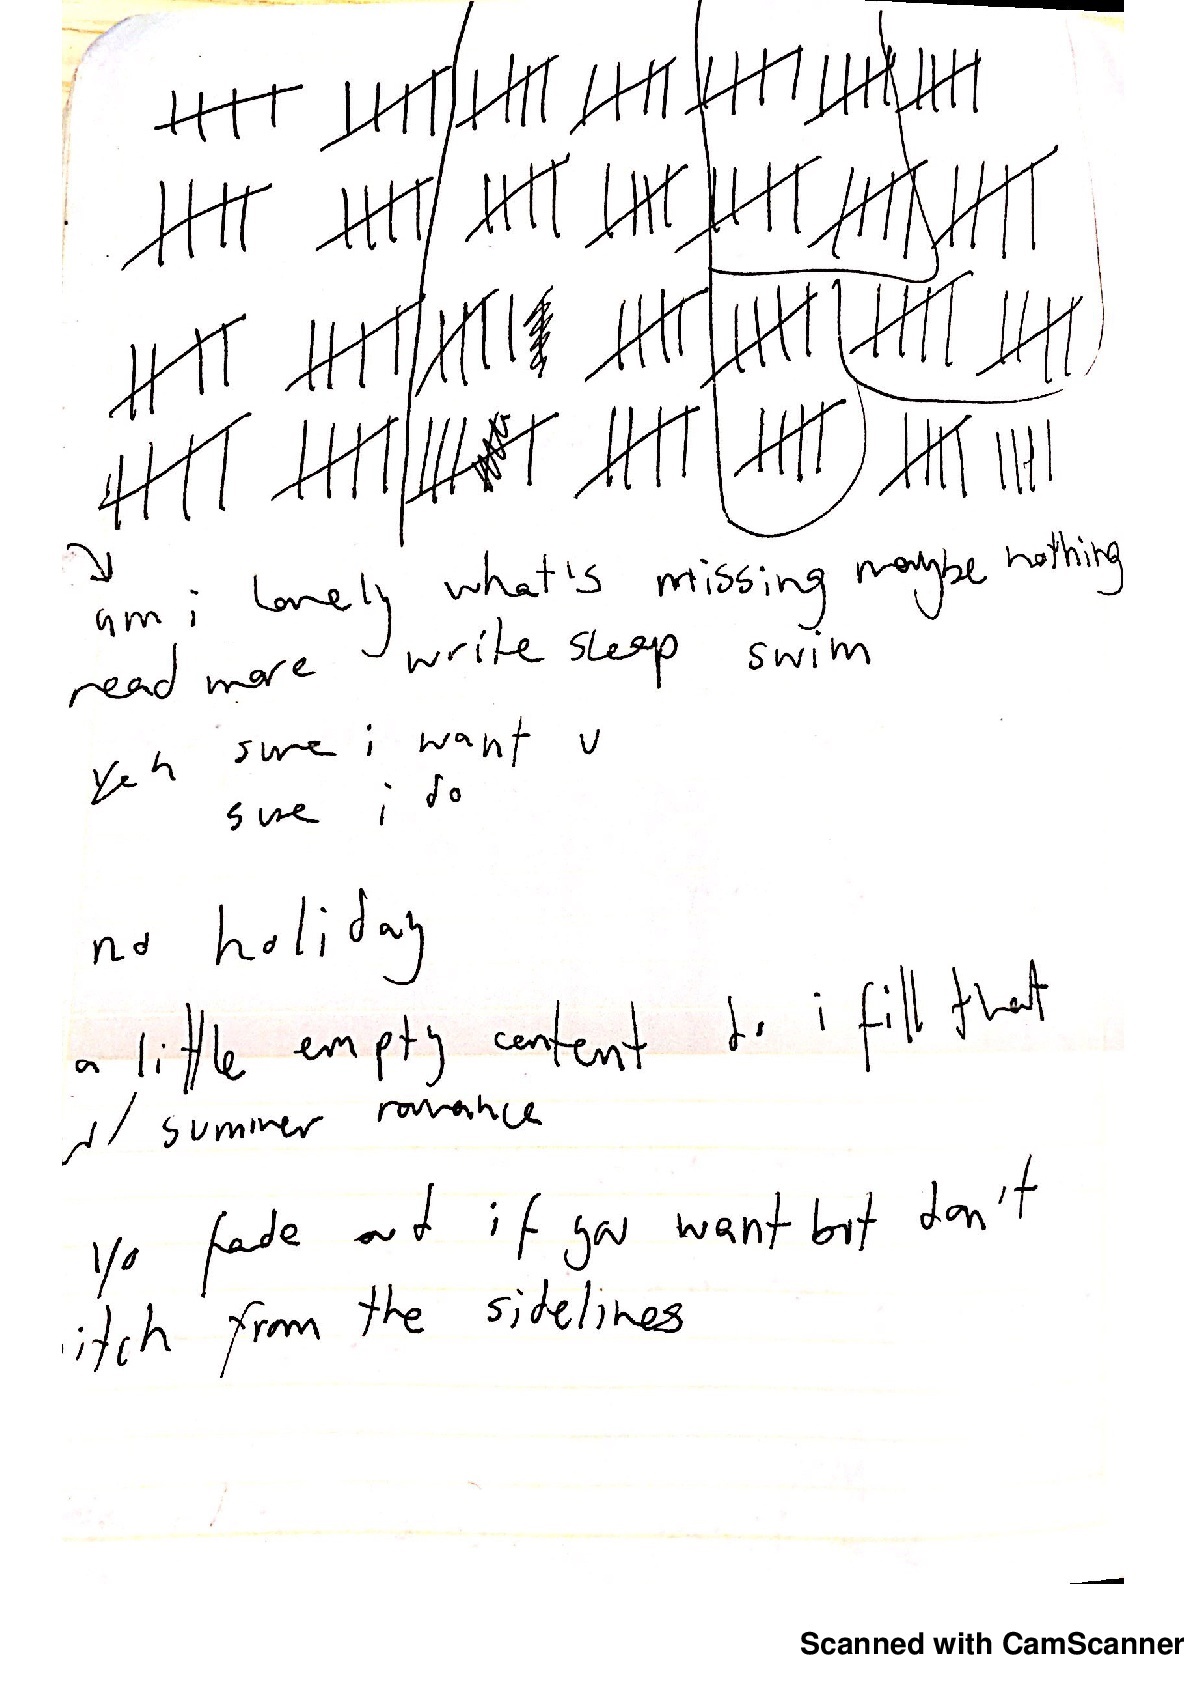 am i lonely what's missing maybe nothing
read more write sleep swim
yeh sure i want u
sure i do
no holiday
a little empty content do i fill that
w/ summer romance
yo fade out if you want but don't
itch from the sidelines
Scanned with CamScanner